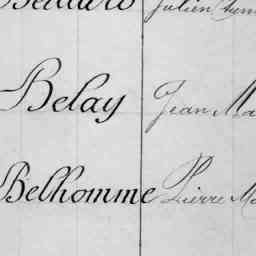 Julien
Belay Jean Ma
Belhomme Pierre Ma